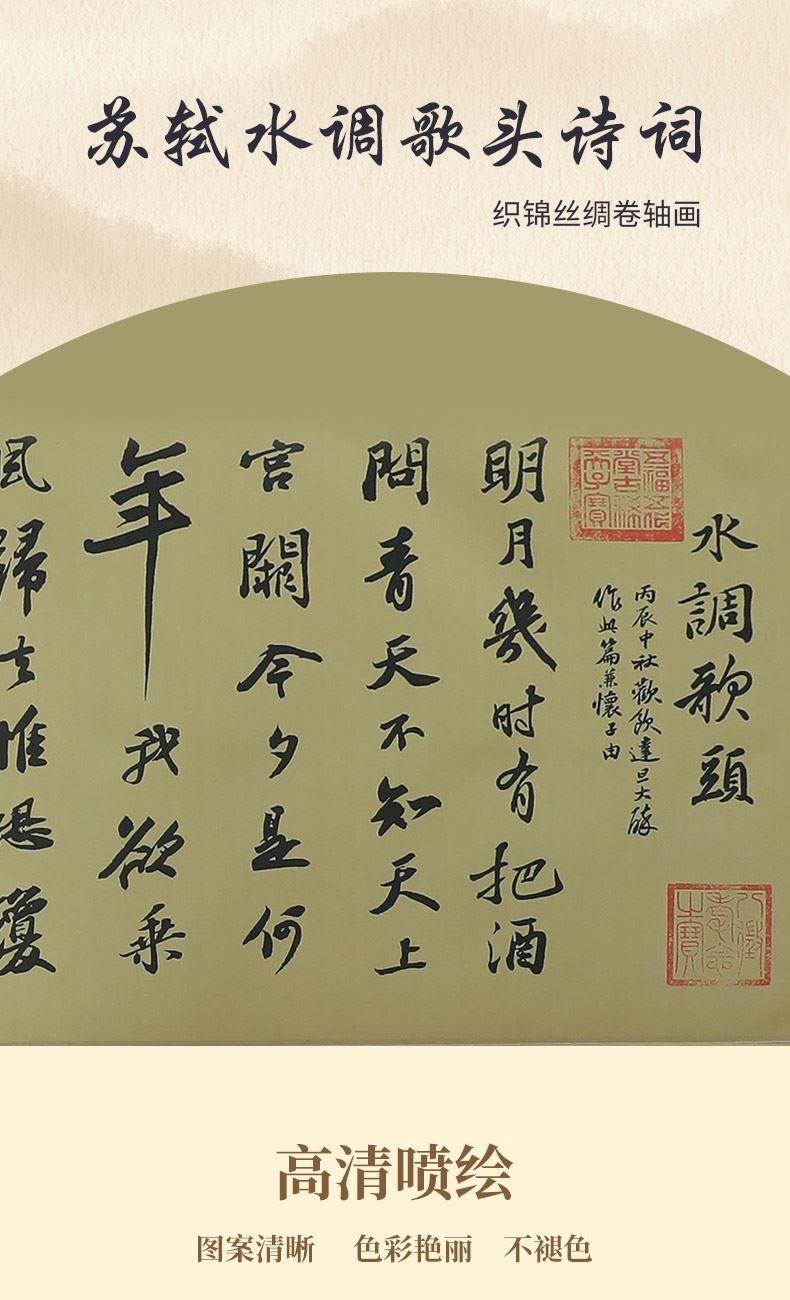 苏轼水调歌头诗词
织锦丝绸卷轴画
水調歌頭
丙辰中秋歡飲達旦大醉
作此篇兼懷子由
五福五代堂古稀天子寶
八徵耄念之寶
明月幾时有把酒
問青天不知天上
宮闕今夕是何
年我欲乘
風歸去惟恐瓊
高清喷绘
图案清晰 色彩艳丽 不褪色